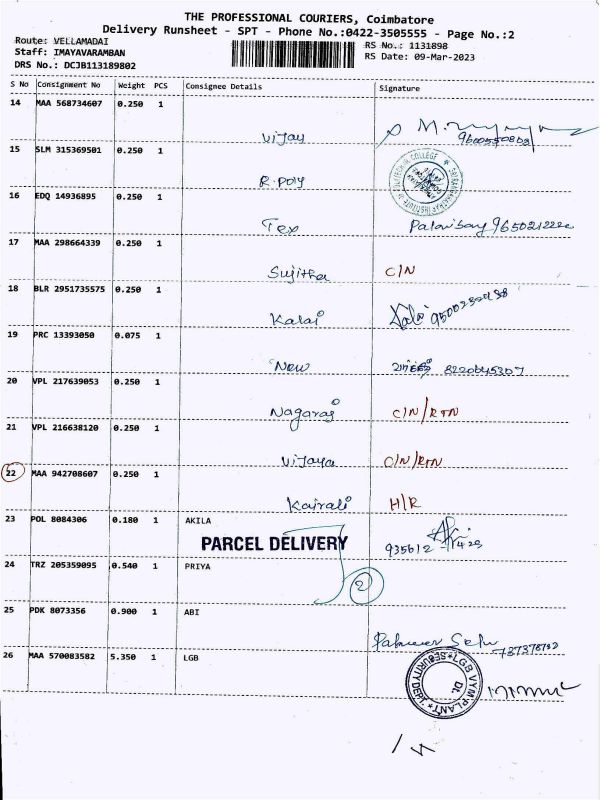 THE PROFESSIONAL COURIERS, Coimbatore
Delivery Runsheet - SPT - Phone No.:0422-3505555 - Page No.:2
Route: VELLAMADAI RS No.: 1131898
Staff: IMAYAVARAMBAN RS Date: 09-Mar-2023
DRS No.: DCJB113189802
S No Consignment No Weight PCS Consignee Details Signature
14 MAA 568734607 0.250 1
Vijay
15 SLM 315369501 0.250 1
R.poly
16 EDQ 14936895 0.250 1
Tex
17 MAA 298664339 0.250 1
Sujitha C/N
18 BLR 2951735575 0.250 1
Kalai
19 PRC 13393050 0.075 1
New 8220645307
20 VPL 217639053 0.250 1
Nagaraj C/N/RTN
21 VPL 216638120 0.250 1
Vijaya C/N/RTN
22 MAA 942708607 0.250 1
Kairali H/R
23 POL 8084306 0.180 1 AKILA
PARCEL DELIVERY
24 TRZ 205359095 0.540 1 PRIYA
2
25 PDK 8073356 0.900 1 ABI
26 MAA 570083582 5.350 1 LGB
LGB VYM PLANT
SECURITY DEPT.